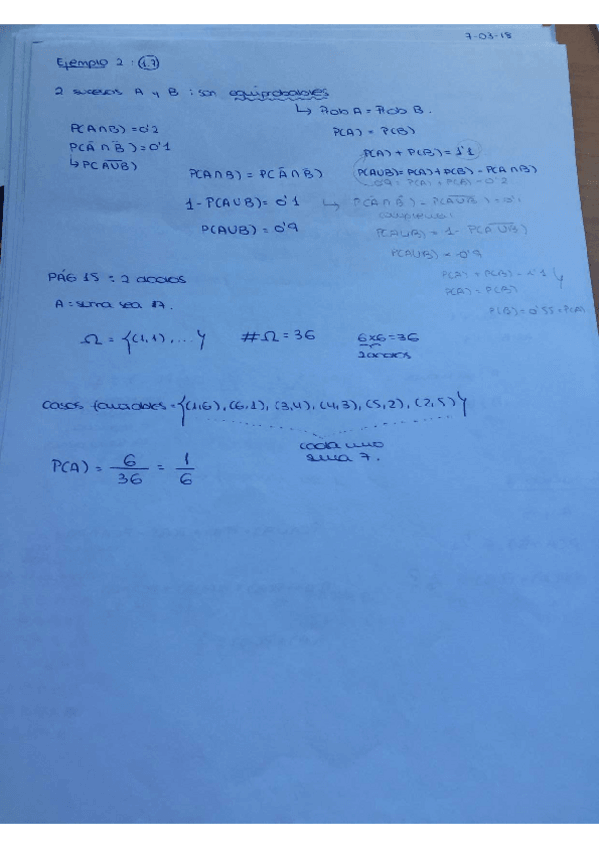 7-03-18
Ejemplo 2: 1.7
2 sucesos A y B: son equiprobables
↳ Prob A = Prob B.
P(A∩B) = 0'2
P(A) = P(B)
P(Ā∩B̄) = 0'1
P(A) + P(B) = 1'1
↳ P(A̅U̅B̅)
P(A∩B) = P(Ā∩B̄)
P(AUB) = P(A) + P(B) - P(A∩B)
0'9 = P(A) + P(B) - 0'2
1 - P(AUB) = 0'1
↳ P(Ā∩B̄) = P(A̅U̅B̅) = 0'1
P(AUB) = 0'9
P(AUB) = 1 - P(A̅U̅B̅)
P(AUB) = 0'9
P(A) + P(B) = 1'1
P(A) = P(B)
P(B) = 0'55 = P(A)
PÁG 15 = 2 dados
A = suma sea 7.
Ω = {(1,1), ... } #Ω = 36 6x6 = 36
2 dados
casos favorables = {(1,6), (6,1), (3,4), (4,3), (5,2), (2,5)}
cada uno
suma 7.
P(A) = 6/36 = 1/6